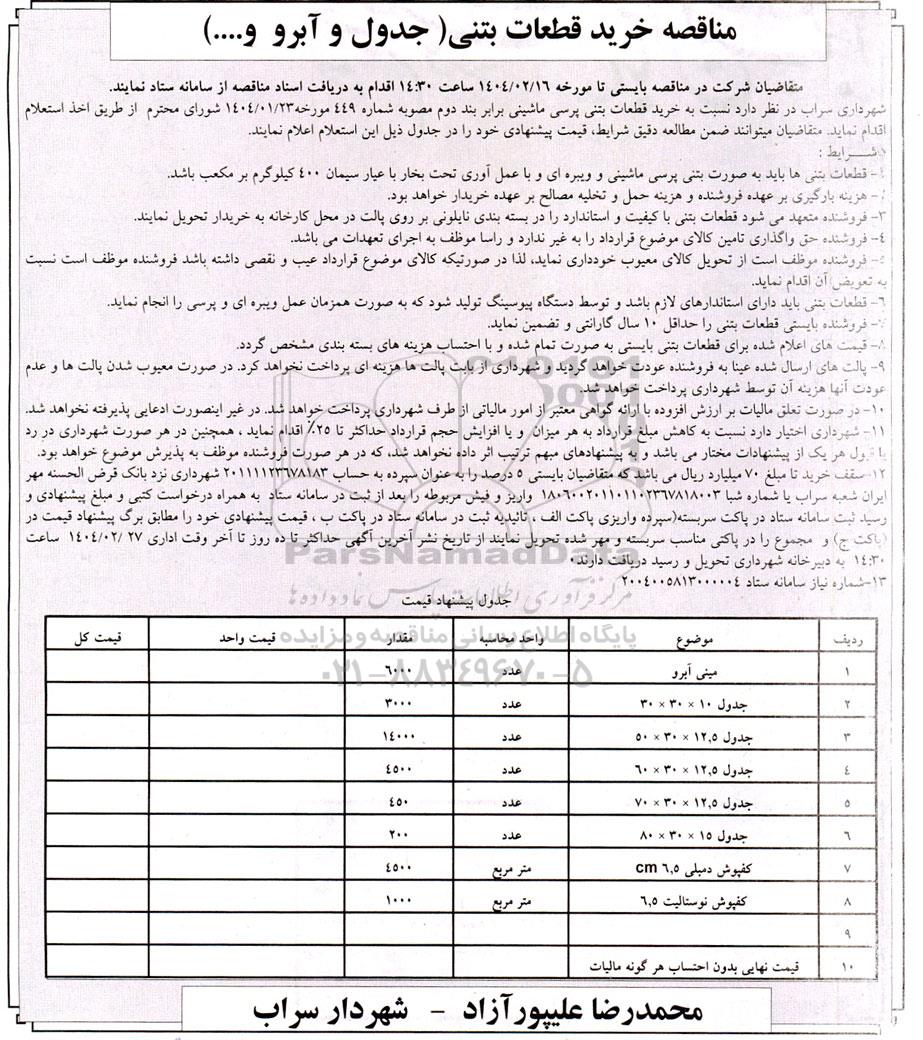 مناقصه خرید قطعات بتنی( جدول و آبرو و....)
متقاضیان شرکت در مناقصه بایستی تا مورخه ۱۴۰۴/۰۲/۱۶ ساعت ۱۴:۳۰ اقدام به دریافت اسناد مناقصه از سامانه ستاد نمایند.
شهرداری سراب در نظر دارد نسبت به خرید قطعات بتنی پرسی ماشینی برابر بند دوم مصوبه شماره ۴۴۹ مورخه۱۴۰۴/۰۱/۲۳ شورای محترم از طریق اخذ استعلام
اقدام نماید. متقاضیان میتوانند ضمن مطالعه دقیق شرایط، قیمت پیشنهادی خود را در جدول ذیل این استعلام اعلام نمایند.
شـــرایط :
۱- قطعات بتنی ها باید به صورت بتنی پرسی ماشینی و ویبره ای و با عمل آوری تحت بخار با عیار سیمان ۴۰۰ کیلوگرم بر مکعب باشد.
۲- هزینه بارگیری بر عهده فروشنده و هزینه حمل و تخلیه مصالح بر عهده خریدار خواهد بود.
۳- فروشنده متعهد می شود قطعات بتنی با کیفیت و استاندارد را در بسته بندی نایلونی بر روی پالت در محل کارخانه به خریدار تحویل نمایند.
۴- فروشنده حق واگذاری تامین کالای موضوع قرارداد را به غیر ندارد و راسا موظف به اجرای تعهدات می باشد.
۵- فروشنده موظف است از تحویل کالای معیوب خودداری نماید، لذا در صورتیکه کالای موضوع قرارداد عیب و نقصی داشته باشد فروشنده موظف است نسبت
به تعویض آن اقدام نماید.
۶- قطعات بتنی باید دارای استاندارهای لازم باشد و توسط دستگاه پیوسینگ تولید شود که به صورت همزمان عمل ویبره ای و پرسی را انجام نماید.
۷- فروشنده بایستی قطعات بتنی را حداقل ۱۰ سال گارانتی و تضمین نماید.
۸- قیمت های اعلام شده برای قطعات بتنی بایستی به صورت تمام شده و با احتساب هزینه های بسته بندی مشخص گردد.
۹- پالت های ارسال شده عینا به فروشنده عودت خواهد گردید و شهرداری از بابت پالت ها هزینه ای پرداخت نخواهد کرد. در صورت معیوب شدن پالت ها و عدم
عودت آنها هزینه آن توسط شهرداری پرداخت خواهد شد.
۱۰- در صورت تعلق مالیات بر ارزش افزوده با ارائه گواهی معتبر از امور مالیاتی از طرف شهرداری پرداخت خواهد شد. در غیر اینصورت ادعایی پذیرفته نخواهد شد.
۱۱- شهرداری اختیار دارد نسبت به کاهش مبلغ قرارداد به هر میزان و یا افزایش حجم قرارداد حداکثر تا ۲۵٪ اقدام نماید ، همچنین در هر صورت شهرداری در رد
یا قبول هر یک از پیشنهادات مختار می باشد و به پیشنهادهای مبهم ترتیب اثر داده نخواهد شد، که در هر صورت فروشنده موظف به پذیرش موضوع خواهد بود.
۱۲-سقف خرید تا مبلغ ۷۰ میلیارد ریال می باشد که متقاضیان بایستی ۵ درصد را به عنوان سپرده به حساب ۲۰۱۱۱۱۲۳۶۷۸۱۸۳ شهرداری نزد بانک قرض الحسنه مهر
ایران شعبه سراب یا شماره شبا ۱۸۰۶۰۰۲۰۱۱۰۱۱۰۲۳۶۷۸۱۸۰۰۳ واریز و فیش مربوطه را بعد از ثبت در سامانه ستاد به همراه درخواست کتبی و مبلغ پیشنهادی و
رسید ثبت سامانه ستاد در پاکت سربسته(سپرده واریزی پاکت الف ، تائیدیه ثبت در سامانه ستاد در پاکت ب ، قیمت پیشنهادی خود را مطابق برگ پیشنهاد قیمت در
(پاکت ج) و مجموع را در پاکتی مناسب سربسته و مهر شده تحویل نمایند از تاریخ نشر آخرین آگهی حداکثر تا ده روز تا آخر وقت اداری ۲۷ /۱۴۰۴/۰۲ ساعت
۱۴:۳۰ به دبیرخانه شهرداری تحویل و رسید دریافت دارند.
۱۳-شماره نیاز سامانه ستاد ۲۰۰۴۰۰۵۸۱۳۰۰۰۰۰۴
ParsNamadData
مرکز فرآوری اطلاعات پارس نماد داده ها
جدول پیشنهاد قیمت
پایگاه اطلاع رسانی مناقصه و مزایده
۰۲۱-۸۸۳۴۹۶۷۰-۵
ردیف موضوع واحد محاسبه مقدار قیمت واحد قیمت کل
۱ مینی آبرو عدد ۶۰۰۰
۲ جدول ۱۰ × ۳۰ × ۳۰ عدد ۳۰۰۰
۳ جدول ۱۲,۵ × ۳۰ × ۵۰ عدد ۱۴۰۰۰
۴ جدول ۱۲,۵ × ۳۰ × ۶۰ عدد ۴۵۰۰
۵ جدول ۱۲,۵ × ۳۰ × ۷۰ عدد ۴۵۰
۶ جدول ۱۵ × ۳۰ × ۸۰ عدد ۲۰۰
۷ کفپوش دمبلی ۶,۵ cm متر مربع ۴۵۰۰
۸ کفپوش نوستالیت ۶,۵ متر مربع ۱۰۰۰
۹
۱۰ قیمت نهایی بدون احتساب هر گونه مالیات
محمدرضا علیپورآزاد - شهردار سراب